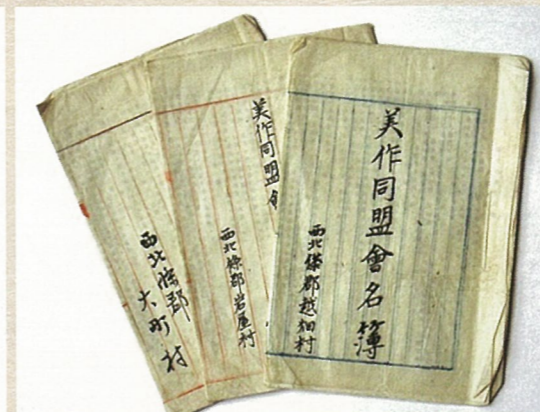 美作同盟會名簿
西北條郡越畑村
美作同盟會
西北條郡岩屋村
西北條郡
大町村